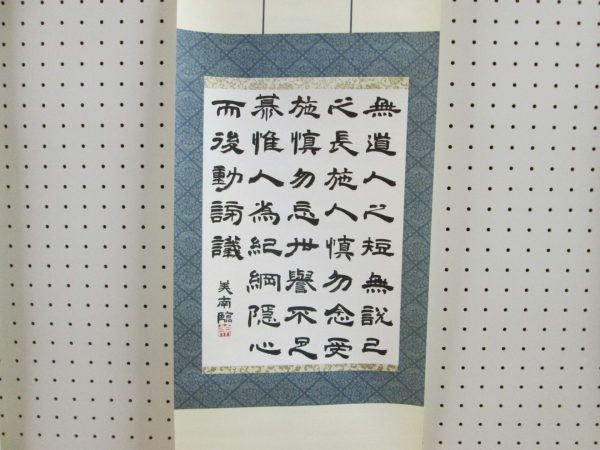 無道人之短無説己
之長施人慎勿念受
施慎勿忘世譽不足
慕惟人為紀綱隱心
而後動謗議
美南臨